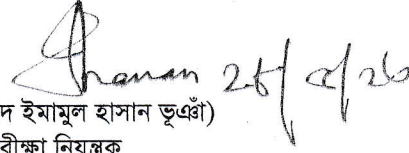 ২৮/৫/২৬
দ ইমামুল হাসান ভূঞাঁ)
রীক্ষা নিয়ন্ত্রক